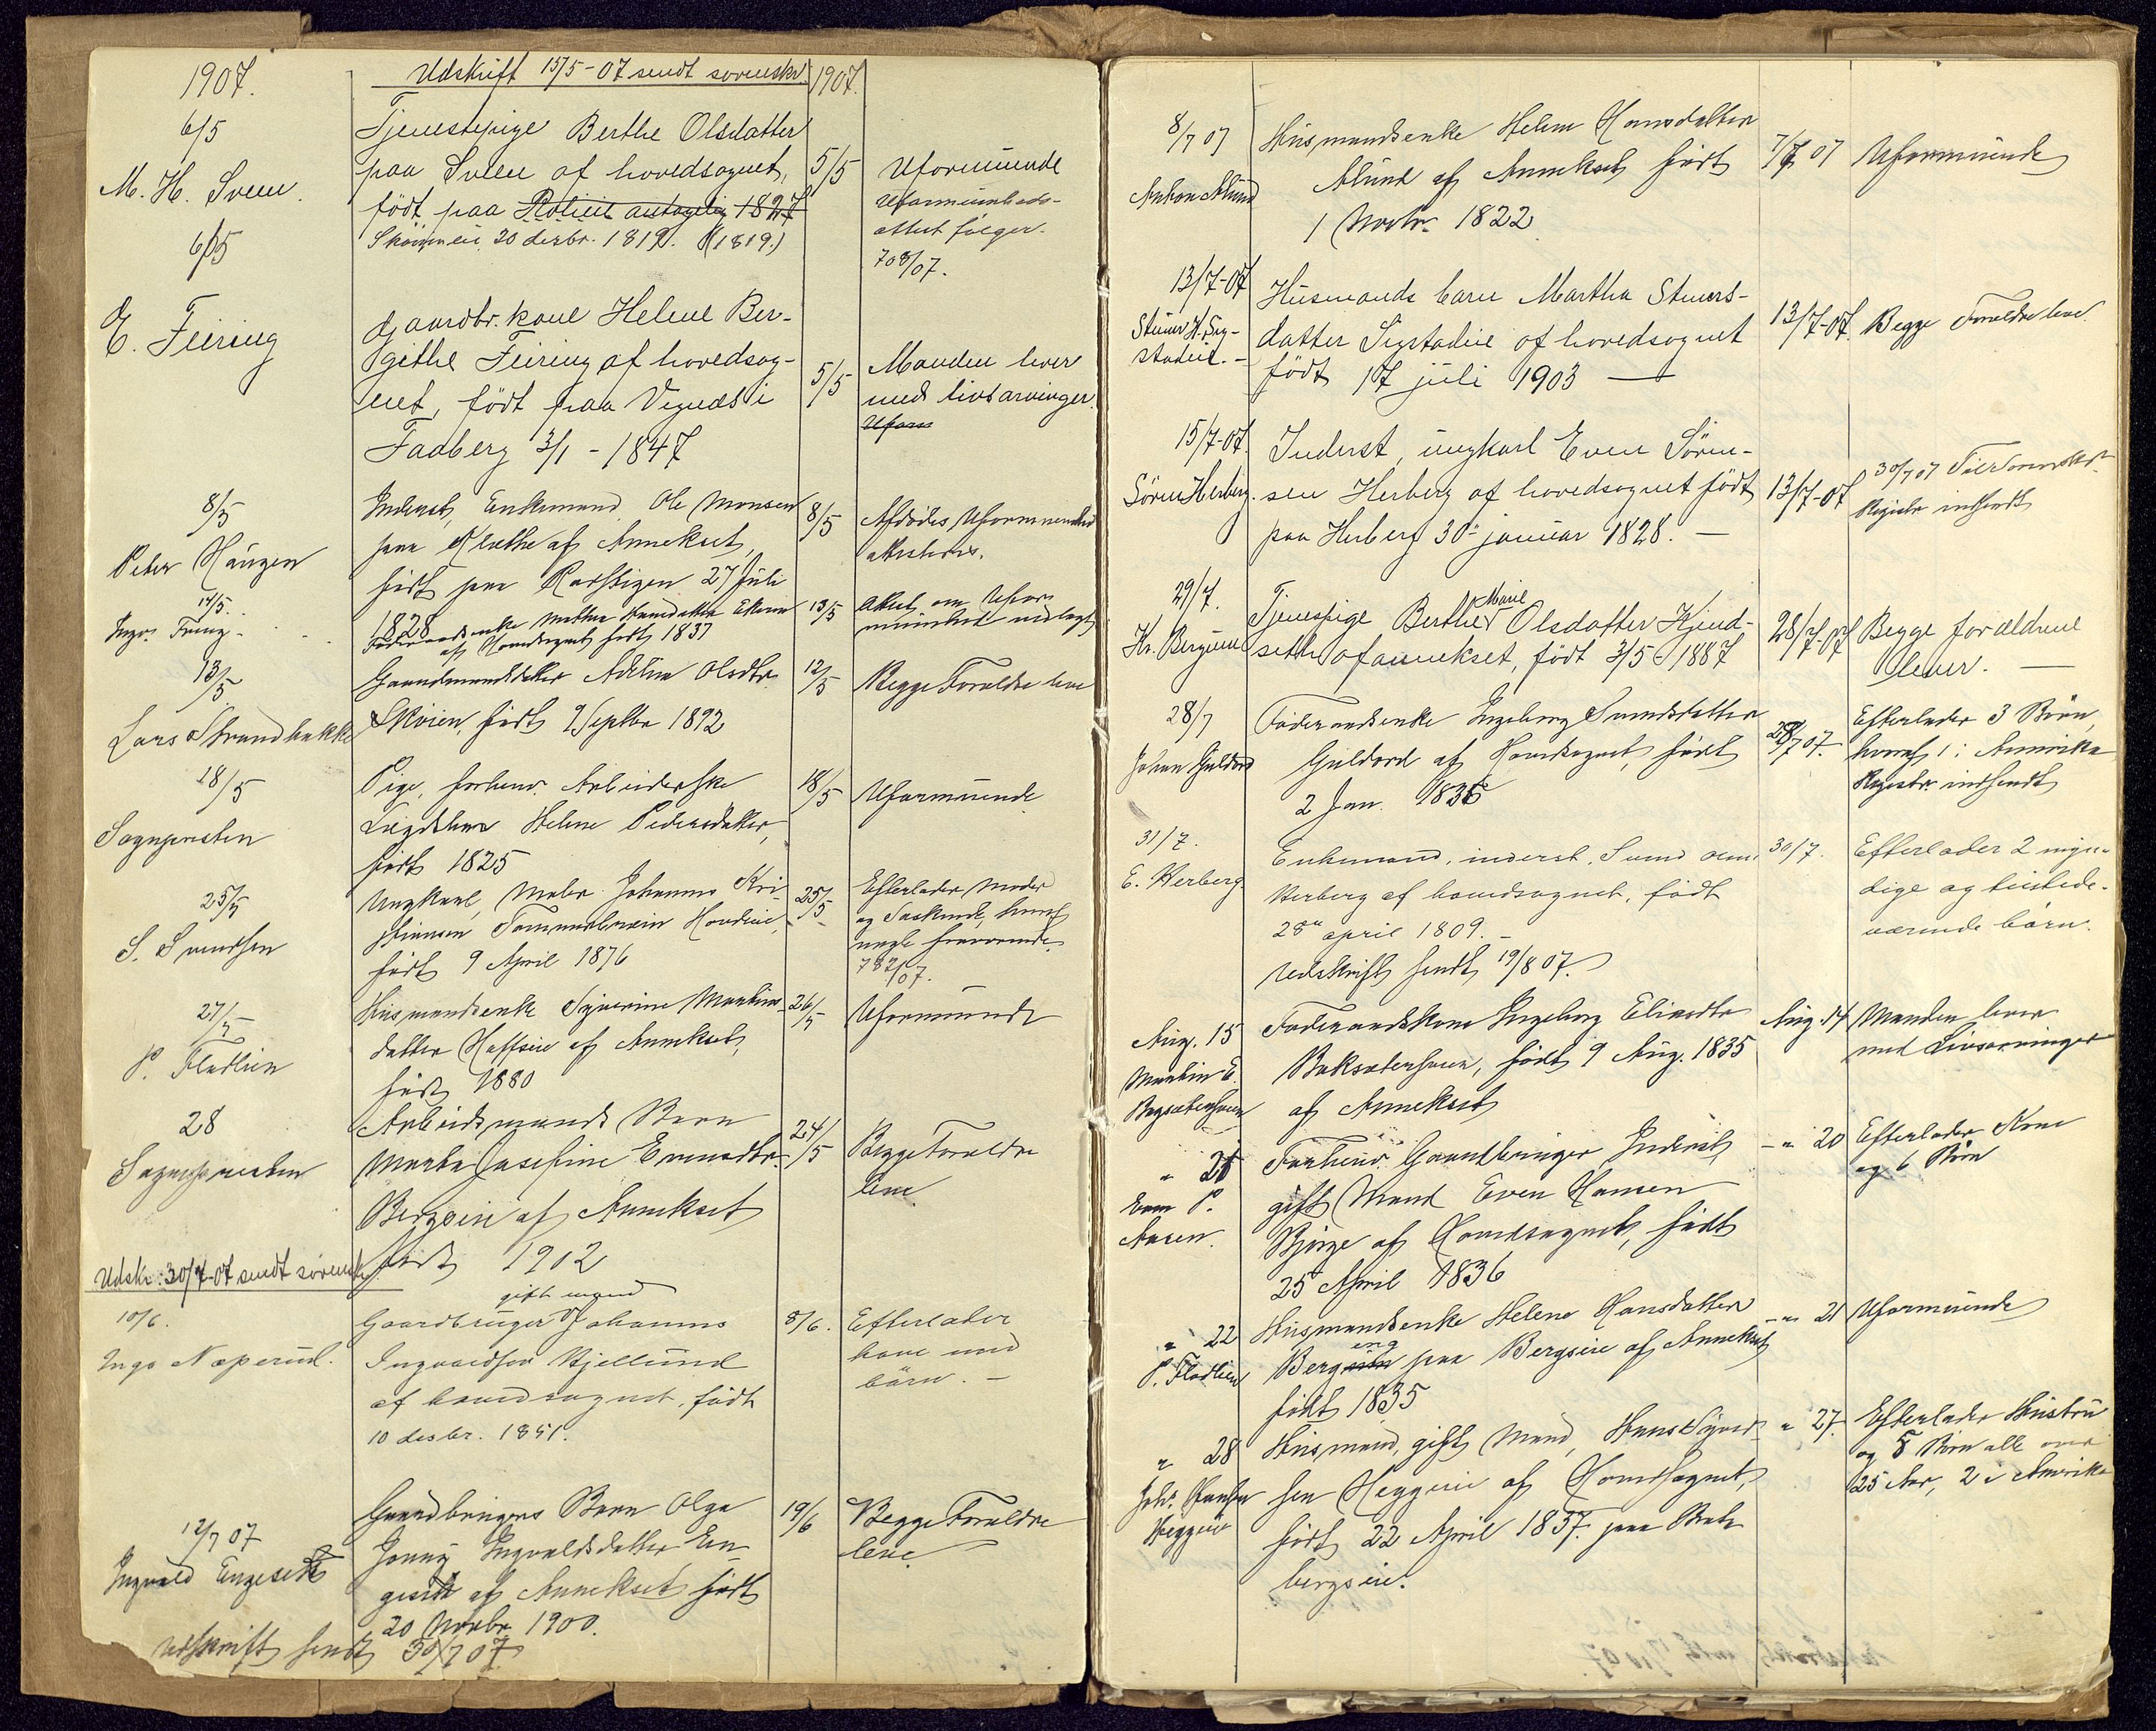 1907.
Udskrift 15/5-07 sendt sorenskr. 1907.
6/5
M. H. Sveen.
Tjenestepige Berthe Olsdatter
paa Sveen af hovedsognet,
født paa Rolieie antagelig 1827
Skönneie 20 desbr. 1819. (1819.)
5/5
Uformuende
Uformuenheds-
attest følger.
708/07.
6/5
E. Feiring
Gaardbr. kone Helene Ber-
githe Feiring af hovedsog-
net, født paa Vignæs i
Faaberg 3/1 - 1847
5/5
Manden lever
med livsarvinger.
Uform
8/5
Peter Haugen
Inderst, Enkemand Ole Monsen
paa Kløthe af Annekset,
født paa 27 Juli
1828
8/5
Afdødes Uformuenhed
attesteres.
14/5.
Føderaadsenke Mathea Ekern
af Hovedsognet født 1837
13/5
Attest om Ufor-
muenhed vedlagt
13/5
Lars Strandbakke
Gaardmandsdatter Adelina Olsdtr
Skøien, født 9 Septbr 1892
12/5
Begge Forældre leve
18/5
Sognepresten
Pige, forhenv. Arbeiderske
Helene Pedersdatter,
født 1825
18/5
Uformuende
25/5
S. Svendsen
Ungkarl, Maler Johannes Kri-
stiansen
født 9 April 1876
25/5
Efterlader Moder
og Søskende, hvoraf
nogle fraværende
782/07.
27/5
P. Fladlien
Husmandsenke Syverine Martins-
datter af Annekset,
født 1880
26/5
Uformuende
28
Sognepresten
Arbeidsmands Barn
Marta Josefine Evensdtr.
Bergseie af Annekset
født 1902
24/5
Begge Forældre
leve
Udskr. 30/7-07 sendt sorenskr.
10/6.
Inga Næperud.
gift mand
Gaardbruger Johannes
Ingvaldsen Kjellund
af hovedsognet, født
10 desbr. 1851.
8/6.
Efterlader
kone med
børn. -
12/7 07
Ingvald Engeseth
Gaardbrugers Barn Olga
Jonny Ingvaldsdatter En-
geseth af Annekset født
20 Novbr 1900.
19/6
Begge Forældre
leve
Udskrift sendt 30/7 07
8/7 07
Anton Ålund
Husmandsenke Helene Hansdatter
Ålund af Annekset født
1 Novbr. 1822
7/7 07
Uformuende
13/7-07
Stener H. Sig-
stadeie. -
Husmands barn Martha Steners-
datter Sigstadeie af hovedsognet
født 17 juli 1903 -
13/7-07.
Begge Forældre leve
15/7-07.
Sören Herberg.
Inderst, ungkarl Even Sören-
sen Herberg af hovedsognet født
paa Herberg 30te januar 1828. -
13/7-07
30/7 07 Til Sorenskr.
Registr. indsendt
29/7.
Kr. Bergum
Tjenestepige Berthe Marie Olsdatter Kjend-
seth af annekset, født 3/5 1887
28/7-07
Begge forældrene
lever. -
28/7
Johan Guldord
Føderaadsenke Ingeborg Svendsdatter
Guldord af Hovedsognet, født
2 Jan. 1836
28/7 07.
Efterlader 3 Børn,
hvoraf 1 i Amerika
Registr. indsendt
31/7.
E. Herberg
Enkemand, inderst, Svend
Herberg af hovedsognet, født
28de april 1809. -
Udskrift sendt 19/8 07.
30/7.
Efterlader 2 myn-
dige og tilstede-
værende børn.
Aug. 15
Martin E.
Føderaadskone Ingeborg
født 9 Aug. 1835
af Annekset
Aug. 14
Manden lever
med Livsarvinger
" 21
Even P.
Aasen.
Forhenv. Gaardbruger Inderst,
gift Mand Even Hansen
Bjørge af Hovedsognet, født
25 April 1836
- " 20
Efterlader Kone
og 6 Børn
" 22
P. Fladlien
Husmandsenke Helene Hansdatter
Bergseng paa Bergseie af Annekset
født 1835
- " 21
Uformuende
" 28
Joh. Hansen
Heggeie
Husmand, gift Mand, Hans Syver-
sen Heggeie af Hovedsognet,
født 22 April 1837 paa Bak-
bergseie.
" 27.
Efterlader Hustru
og 8 Børn alle over
25 Aar, 2 i Amerika